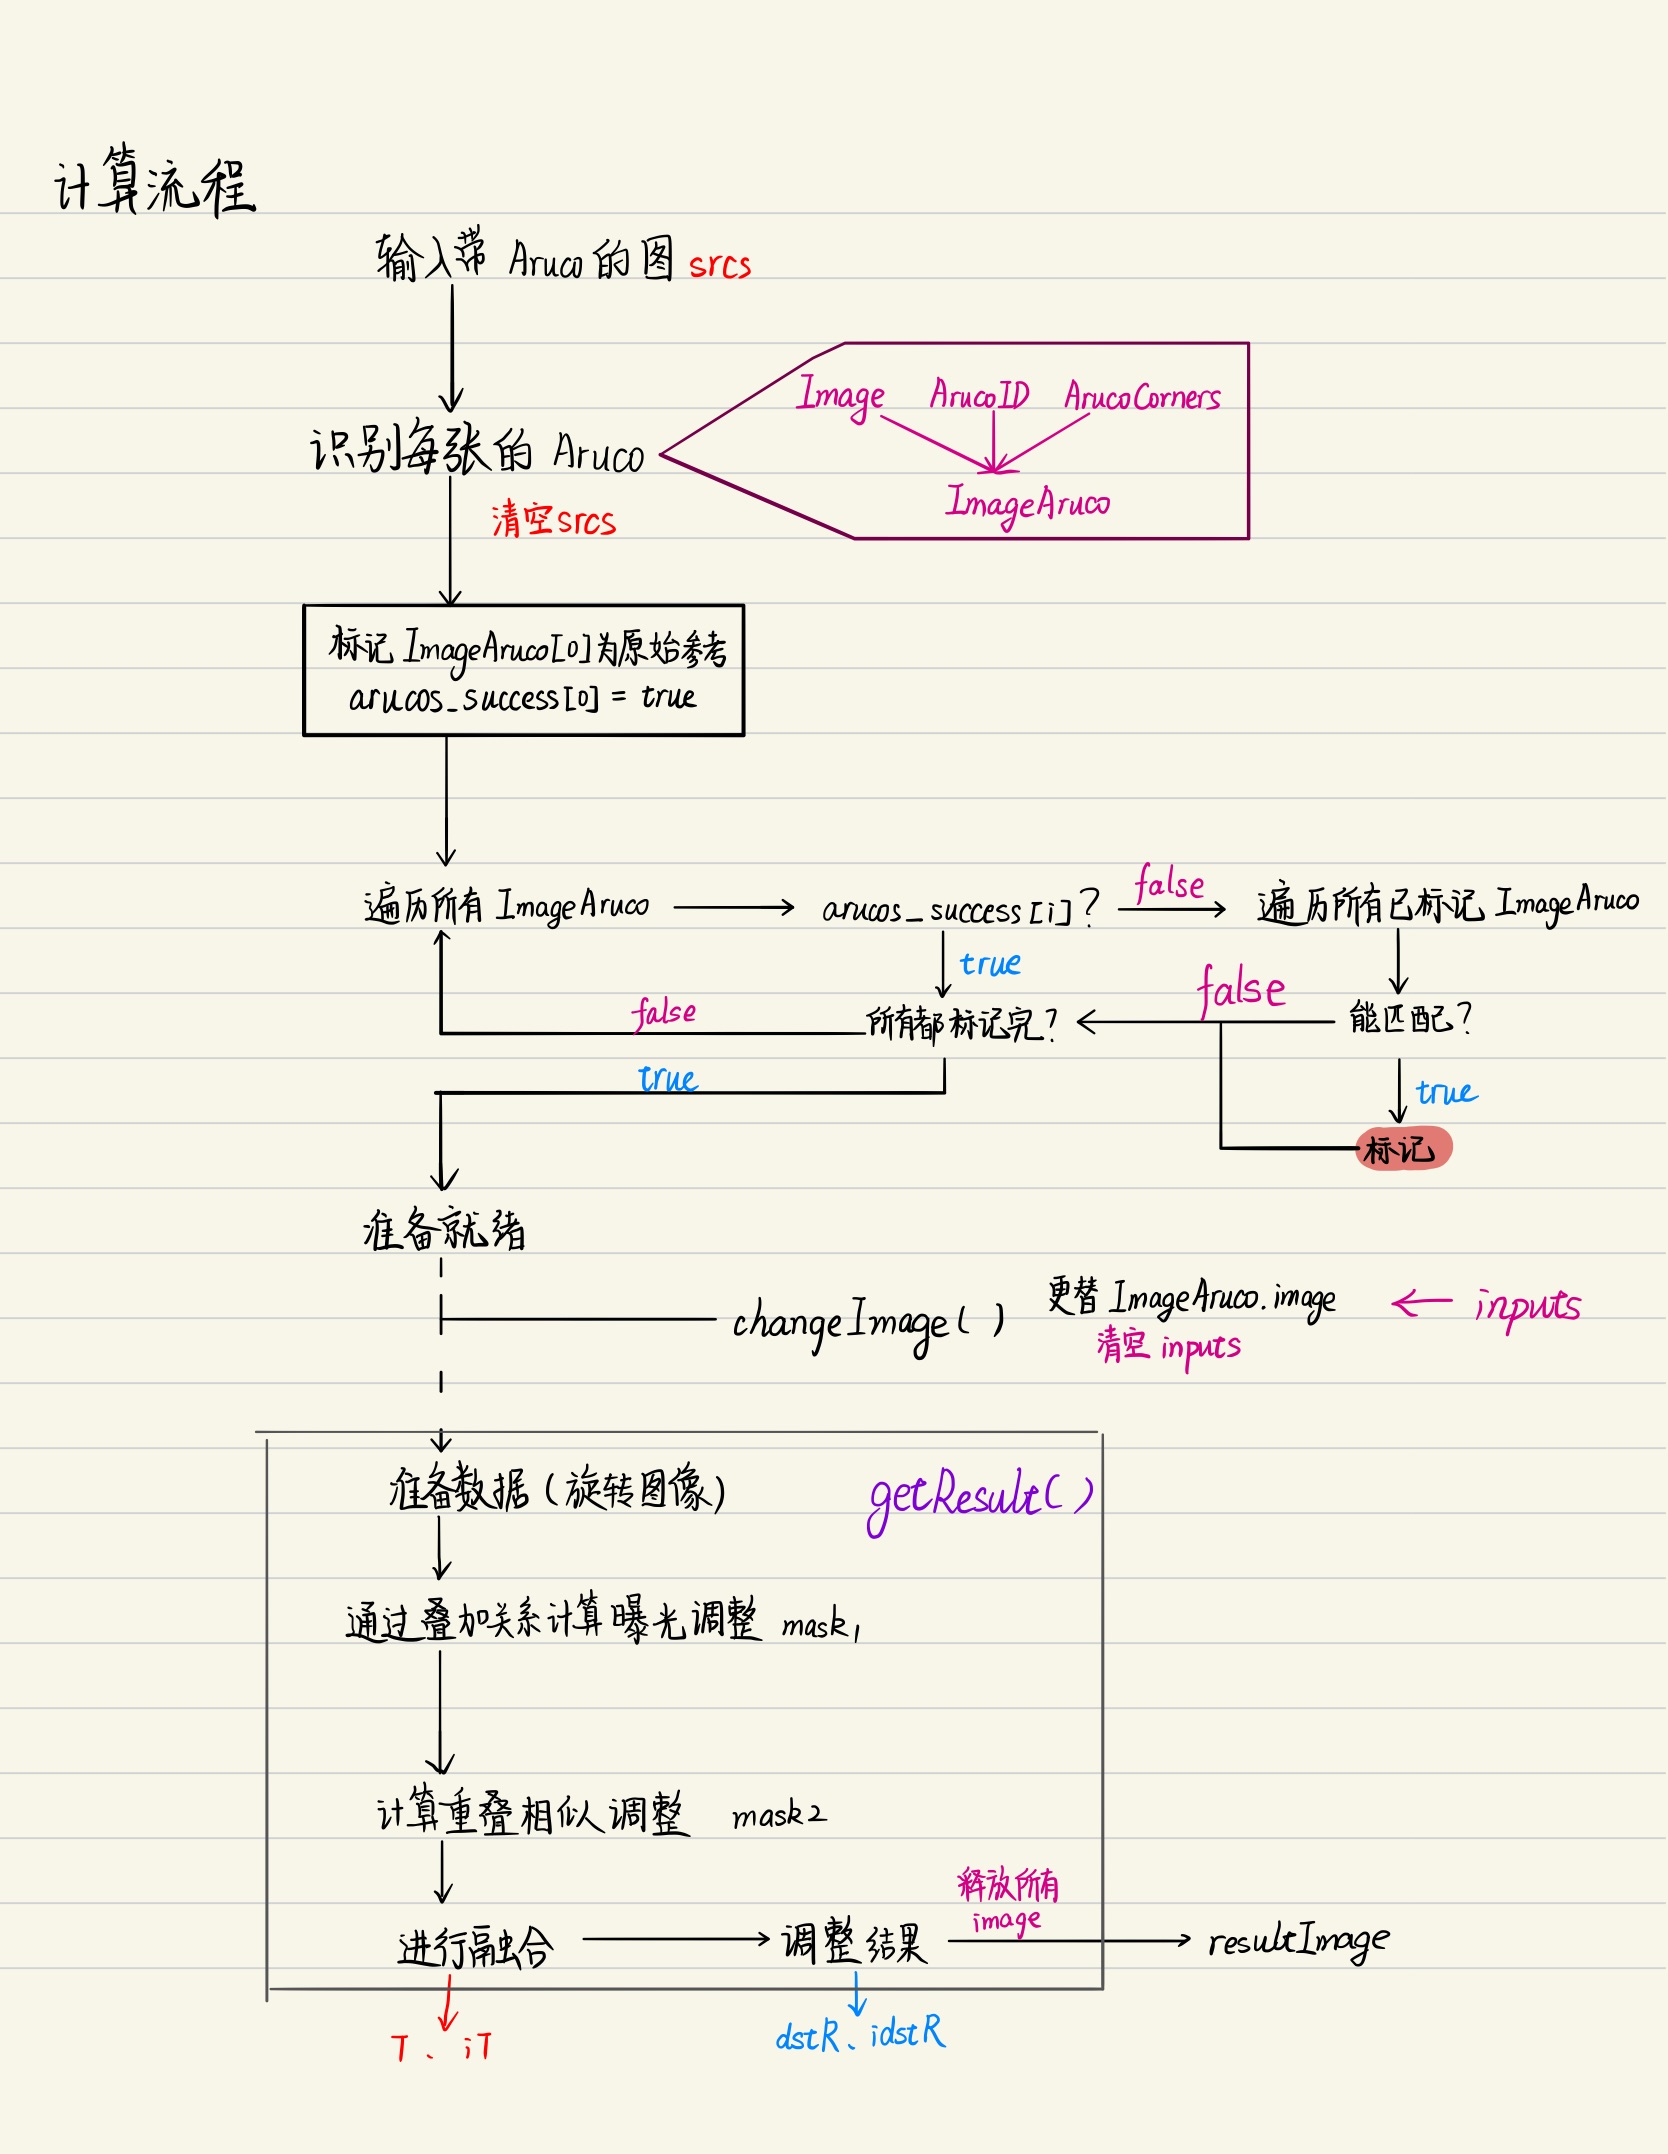 计算流程
输入带 Aruco 的图 srcs
Image ArucoID ArucoCorners
识别每张的 Aruco
ImageAruco
清空srcs
标记 ImageAruco[0]为原始参考
arucos_success[0] = true
遍历所有 ImageAruco
arucos_success[i]?
false
遍历所有已标记 ImageAruco
true
false
所有都标记完?
false
能匹配?
true
true
标记
准备就绪
changeImage()
更替 ImageAruco.image
inputs
清空 inputs
准备数据(旋转图像)
getResult()
通过叠加关系计算曝光调整 mask1
计算重叠相似调整 mask2
释放所有
image
进行融合
调整结果
resultImage
T、iT
dstR、idstR